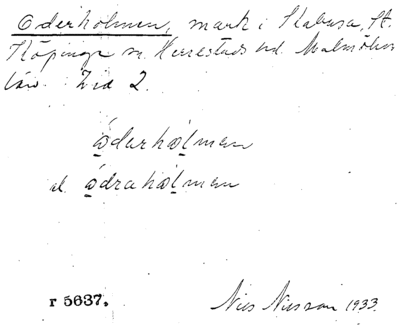 Oderholmen, mark i Stabusa, St.
Köpinge sn. Herrestads hd. Malmöhus
län. Zed 2.
ódarhólmen
el. ódrahólmen
r 5637.
Nils Nilsson 1933.